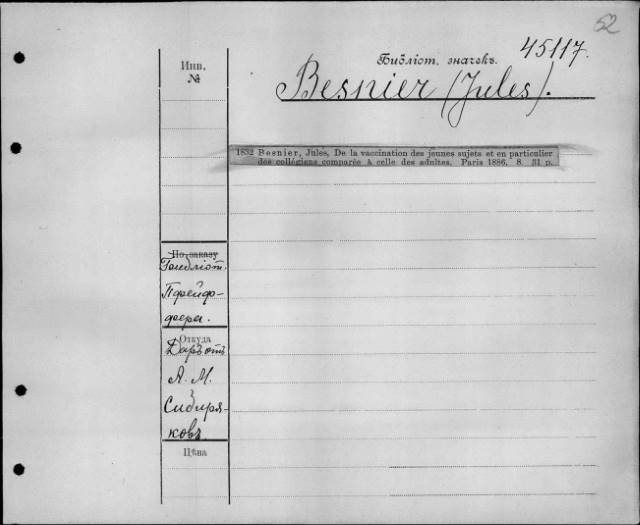 52
Библіот. значекъ.
45117.
Инв.
№
Besnier (Jules).
1832 Besnier, Jules, De la vaccination des jeunes sujets et en particulier
des collégiens comparée à celle des adultes. Paris 1886. 8. 31 p.
По заказу
Пфейф-
фера.
Откуда
Даръ отъ
А. М.
Сибиря-
ковъ
Цѣна